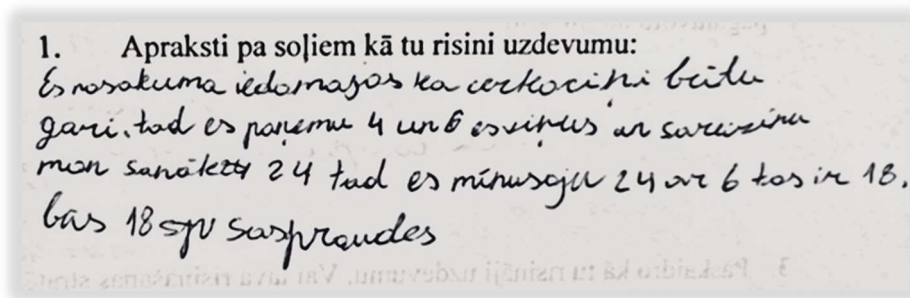 1. Apraksti pa soļiem kā tu risini uzdevumu:
Es nosakuma iedomajos ka cerkociņi būtu
gari. tad es paņemu 4 un 6 es viņus
mon sanāktu 24 tad es mīnusoju 24 ar 6 tas ir 18.
būs 18 saspraudes